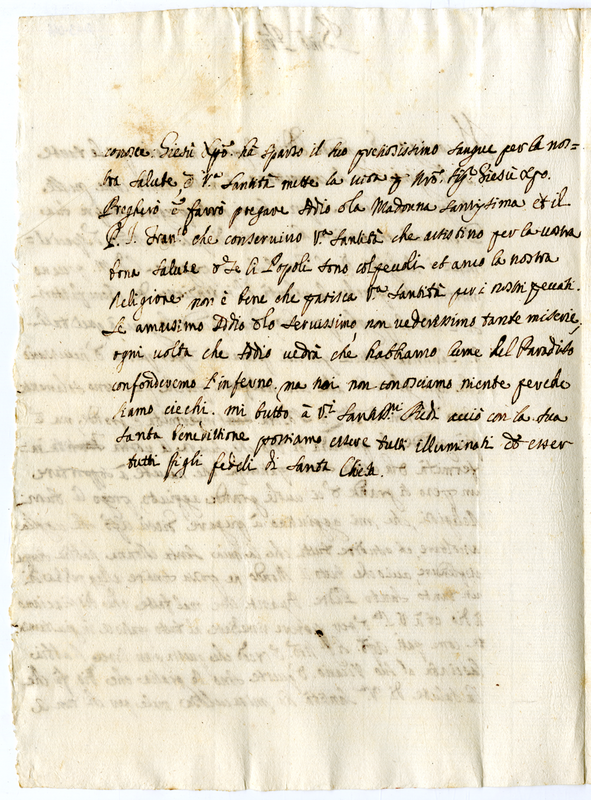 conosce. Giesù Xpo. hà sparso il suo pretiosissimo sangue per la nos=
tra salute è V.ª Santità mette la vita p Nro. Sigr. Giesù Xpo.
Pregherò è farrò pregare Iddio et la Madonna Santissima et il
P. S. Fran.co che conservino V.ª Santità che assistino per la vostra
bona salute et se li Popoli sono colpevoli et anco la nostra
Religione non è bene che patisca V.ª Santità per i nostri peccati.
Se amassimo Iddio et lo servissimo, non vederessimo tante miserie,
ogni volta che Iddio vedrà che habbiamo seme del Paradiso
confonderemo l'inferno, ma noi non conosciamo niente perche
siamo ciechi. mi butto à V.ri Santiss.mi Piedi acciò con la sua
santa beneditione possiamo essere tutti illuminati et esser
tutti figli fedeli di Santa Chiesa.